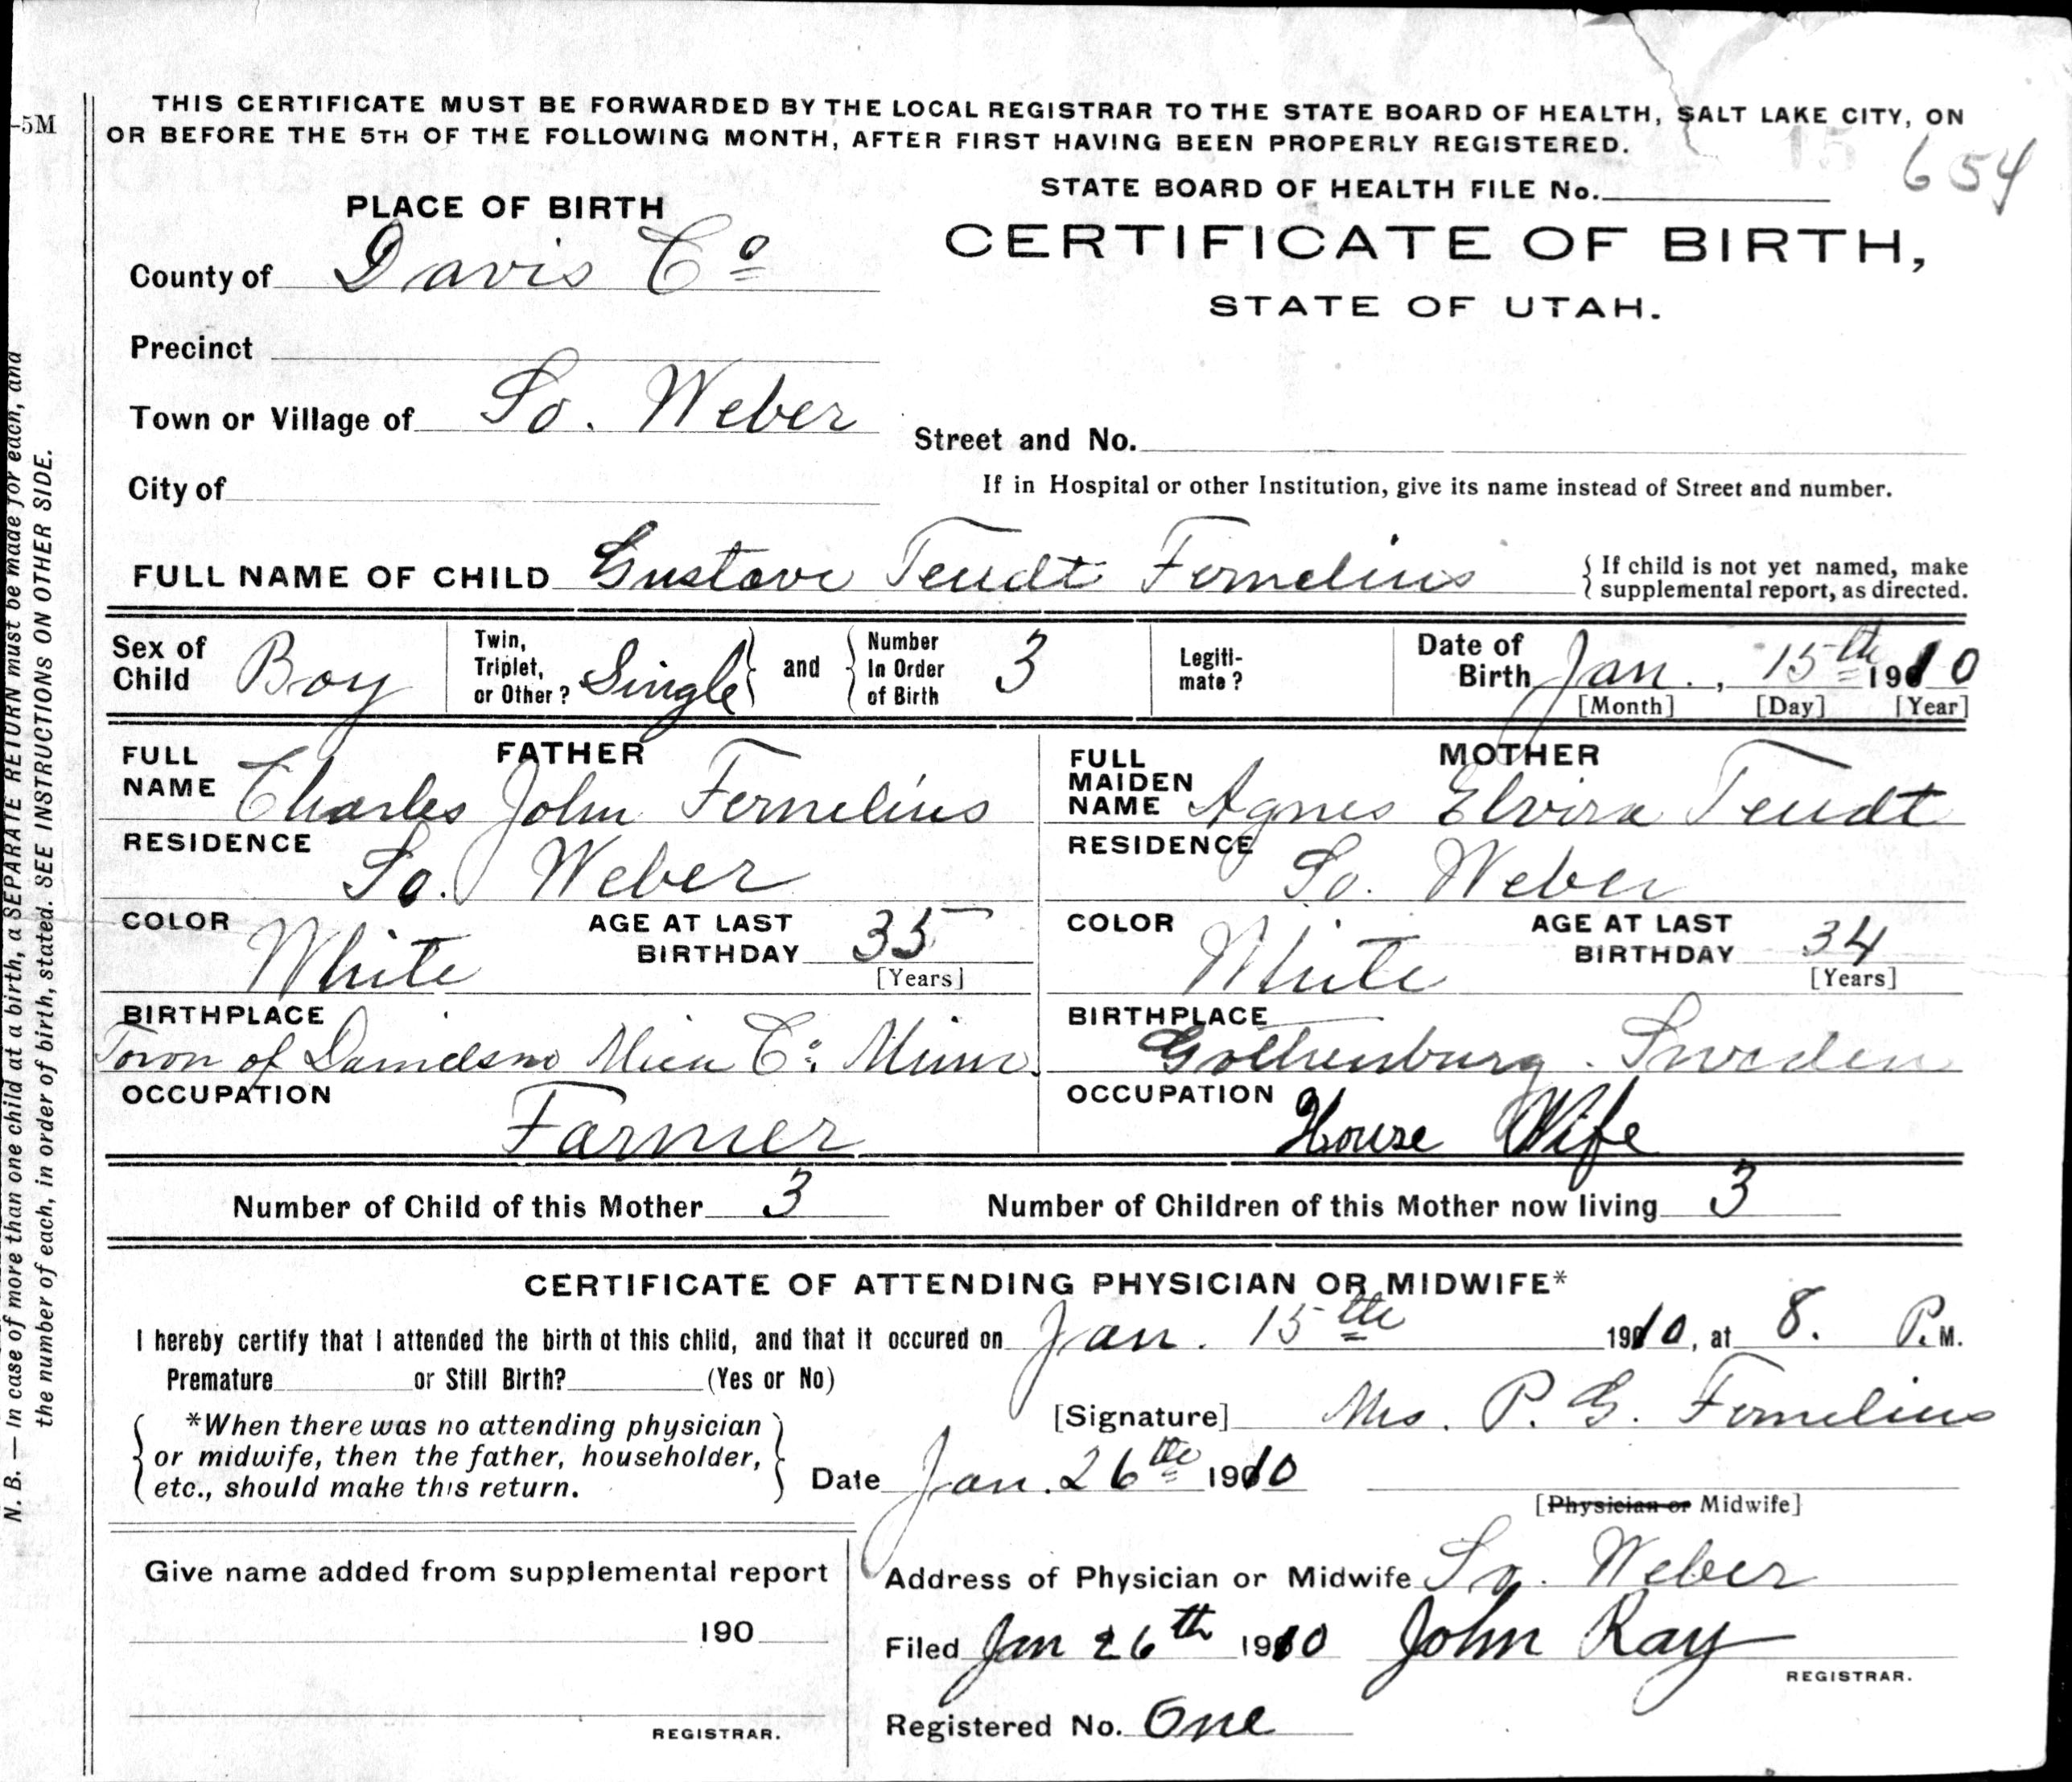 THIS CERTIFICATE MUST BE FORWARDED BY THE LOCAL REGISTRAR TO THE STATE BOARD OF HEALTH, SALT LAKE CITY, ON
OR BEFORE THE 5TH OF THE FOLLOWING MONTH, AFTER FIRST HAVING BEEN PROPERLY REGISTERED.
-5M
15
654
STATE BOARD OF HEALTH FILE No.
PLACE OF BIRTH
CERTIFICATE OF BIRTH,
STATE OF UTAH.
County of Davis Co
Precinct
Town or Village of So. Weber
Street and No.
City of
If in Hospital or other Institution, give its name instead of Street and number.
FULL NAME OF CHILD Gustave Teudt Fernelius
{ If child is not yet named, make
supplemental report, as directed.
Sex of Child Boy
Twin, Triplet, or Other? Single } and { Number In Order of Birth 3
Legiti-mate?
Date of Birth Jan., 15th 1910
[Month] [Day] [Year]
FATHER
FULL NAME Charles John Fernelius
RESIDENCE So. Weber
COLOR White AGE AT LAST BIRTHDAY 35
[Years]
BIRTHPLACE
Town of Co. Minn.
OCCUPATION Farmer
MOTHER
FULL MAIDEN NAME Agnes Elvira Teudt
RESIDENCE So. Weber
COLOR White AGE AT LAST BIRTHDAY 34
[Years]
BIRTHPLACE
Gothenburg. Sweden
OCCUPATION House Wife
Number of Child of this Mother 3 Number of Children of this Mother now living 3
CERTIFICATE OF ATTENDING PHYSICIAN OR MIDWIFE*
I hereby certify that I attended the birth of this child, and that it occured on Jan. 15th 1910, at 8. P.M.
Premature or Still Birth? (Yes or No)
[Signature] Mrs. P. G. Fernelius
{ *When there was no attending physician }
or midwife, then the father, householder,
etc., should make this return.
Date Jan. 26th 1910
[Physician or Midwife]
Give name added from supplemental report
190
REGISTRAR.
Address of Physician or Midwife So. Weber
Filed Jan 26th 1910 John Ray
REGISTRAR.
Registered No. One
N. B. — In case of more than one child at a birth, a SEPARATE RETURN must be made for each, and
the number of each, in order of birth, stated. SEE INSTRUCTIONS ON OTHER SIDE.